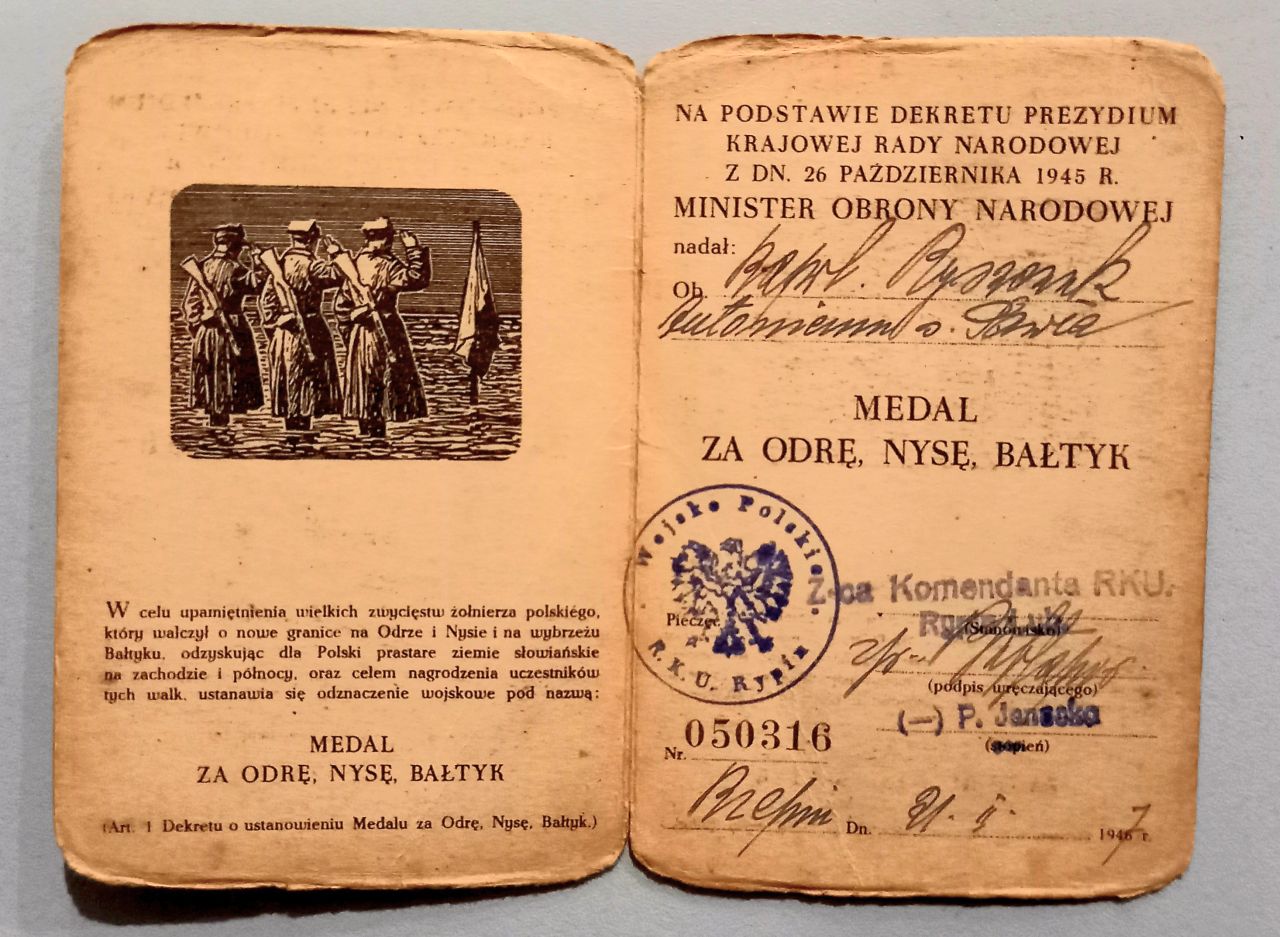 W celu upamiętnienia wielkich zwycięstw żołnierza polskiego,
który walczył o nowe granice na Odrze i Nysie i na wybrzeżu
Bałtyku, odzyskując dla Polski prastare ziemie słowiańskie
na zachodzie i północy, oraz celem nagrodzenia uczestników
tych walk, ustanawia się odznaczenie wojskowe pod nazwą:
MEDAL
ZA ODRĘ, NYSĘ, BAŁTYK
(Art. 1 Dekretu o ustanowieniu Medalu za Odrę, Nysę, Bałtyk.)
NA PODSTAWIE DEKRETU PREZYDIUM
KRAJOWEJ RADY NARODOWEJ
Z DN. 26 PAŹDZIERNIKA 1945 R.
MINISTER OBRONY NARODOWEJ
nadał:
Ob.
MEDAL
ZA ODRĘ, NYSĘ, BAŁTYK
Wojsko Polskie
R.K.U. Rypin
Pieczęć
Z-ca Komendanta RKU.
(Stanowisko)
(podpis wręczającego)
(—) P. 
(stopień)
Nr. 050316
Dn. 21. 1947 r.